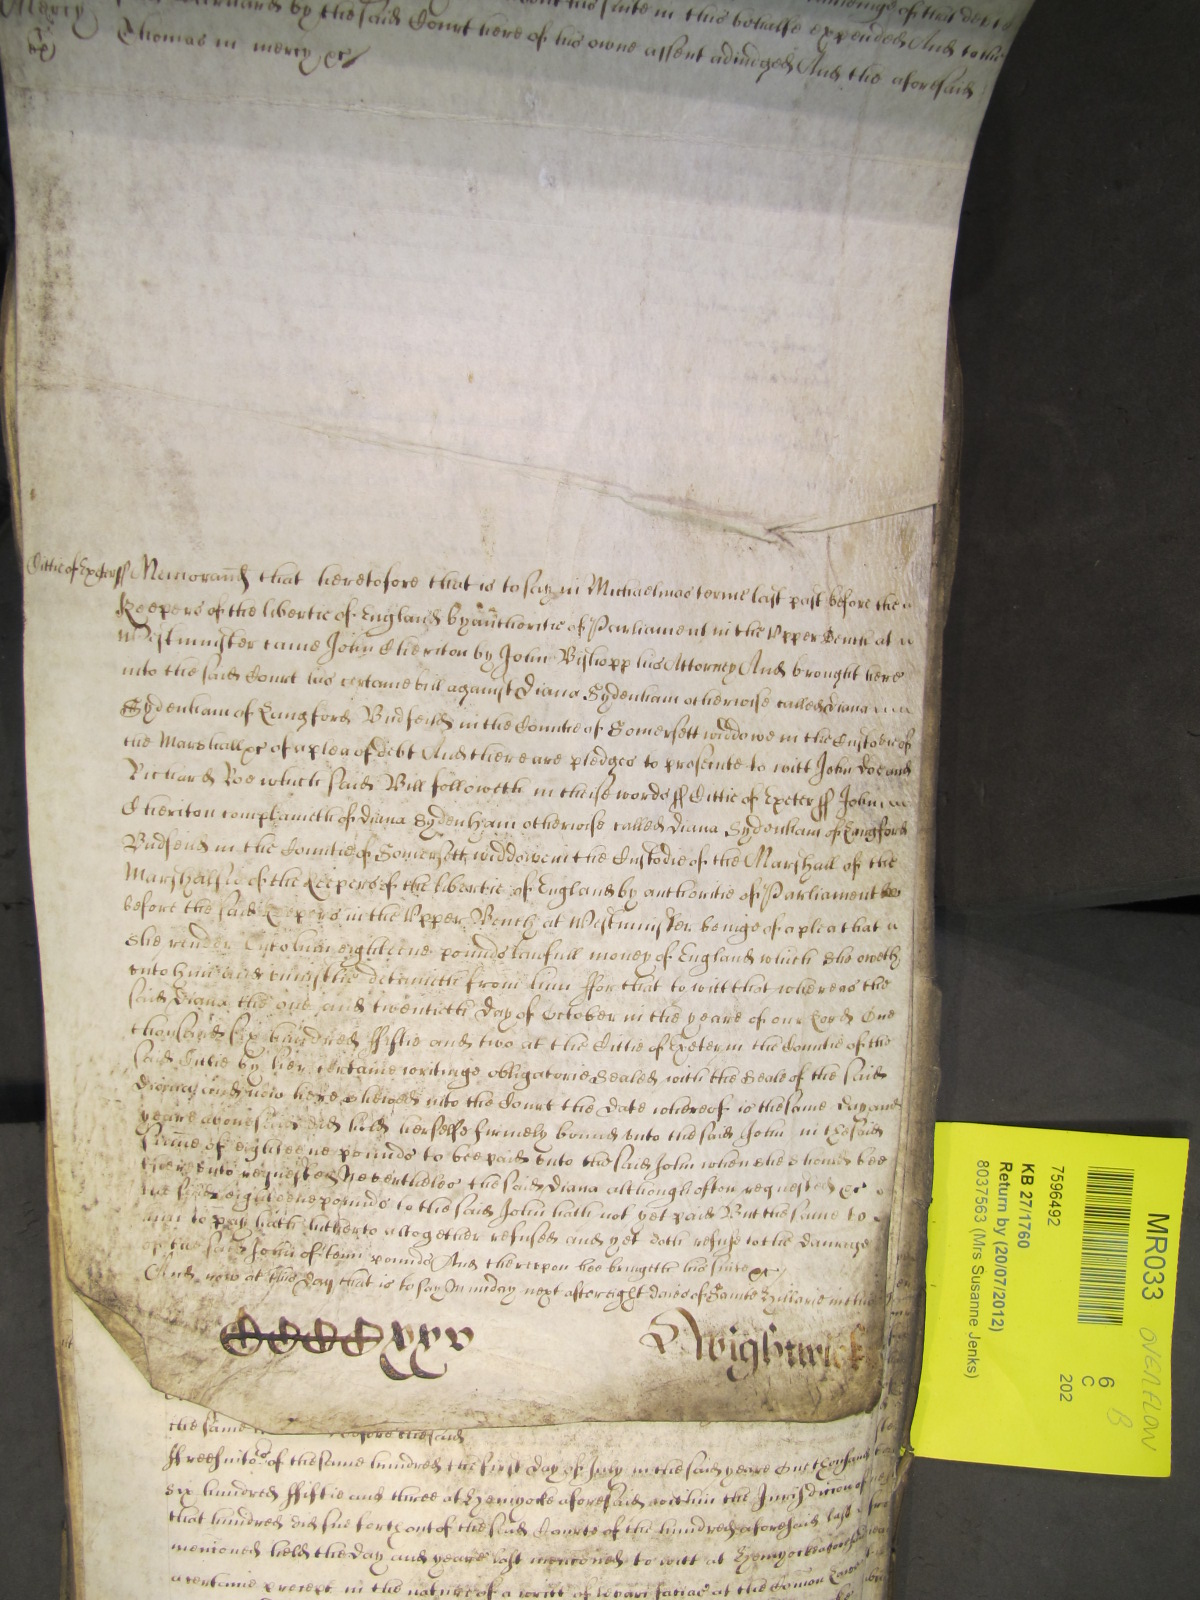 by the said Court here of his owne assent adiudged And the aforesaid
Mercy
Thomas in mercy &c
Cittie of Exeter ss Memorand that heretofore that is to say in Michaelmas terme last past before the
Keepers of the libertie of England by authoritie of Parliament in the Upper Bench at
Westminster came John Cheriton by John Bishopp his Attorney And brought here
into the said Court his certaine bill against Diana Sydenham otherwise called Diana
Sydenham of Langford Budfend in the Countie of Somersett widdowe in the Custodie of
the Marshall &c of a plea of debt And there are pledges to prosecute to witt John Doe and
Richard Roe which said Bill followeth in theise words ss Cittie of Exeter ss John
Cheriton complaineth of Diana Sydenham otherwise called Diana Sydenham of Langford
Budfend in the Countie of Somersett widdowe in the Custodie of the Marshall of the
Marshalsie of the Keepers of the libertie of England by authoritie of Parliament
before the said Keepers in the Upper Bench at Westminster beinge of a plea that
she render unto him eighteene pounds lawfull money of England which she oweth
unto him and uniustlie detaineth from him ffor that to witt that whereas the
said Diana the one and twentieth day of October in the yeare of our Lord One
thousand six hundred ffiftie and two at the Cittie of Exeter in the Countie of the
said Cittie by her certaine writinge obligatorie Sealed with the Seale of the said
Diana and now here shewed into the Court the date whereof is the same day and
yeare abovesaid did hold herselfe firmely bound unto the said John in the said
summe of eighteene pounds to bee paid unto the said John when she should bee
thereunto requested Neverthelesse the said Diana although often requested &c
the said eighteene pounds to the said John hath not yet paid But the same to
him to pay hath hitherto altogether refused and yet doth refuse to the damage
of the said John of tenn pounds And thereupon hee bringeth his suite &c
And now at this day that is to say Munday next after eight daies of Sainte Hillarie in the
CCCCxxxv Wightwick
the same before the said
ffreesuitors of the same hundred the first day of July in the said yeare One thousand
six hundred ffiftie and three at Hemyocke aforesaid within the Jurisdiccion of
that hundred did sue forth out of the said Courte of the hundred aforesaid last
mencioned held the day and yeare last mencioned to witt at Hemyocke aforesaid
a certaine precept in the nature of a writt of levari facias at the Comon Lawe
MR033 OVERFLOW
B
6
C
202
7596492
KB 27/1760
Return by (20/07/2012)
8037563 (Mrs Susanne Jenks)